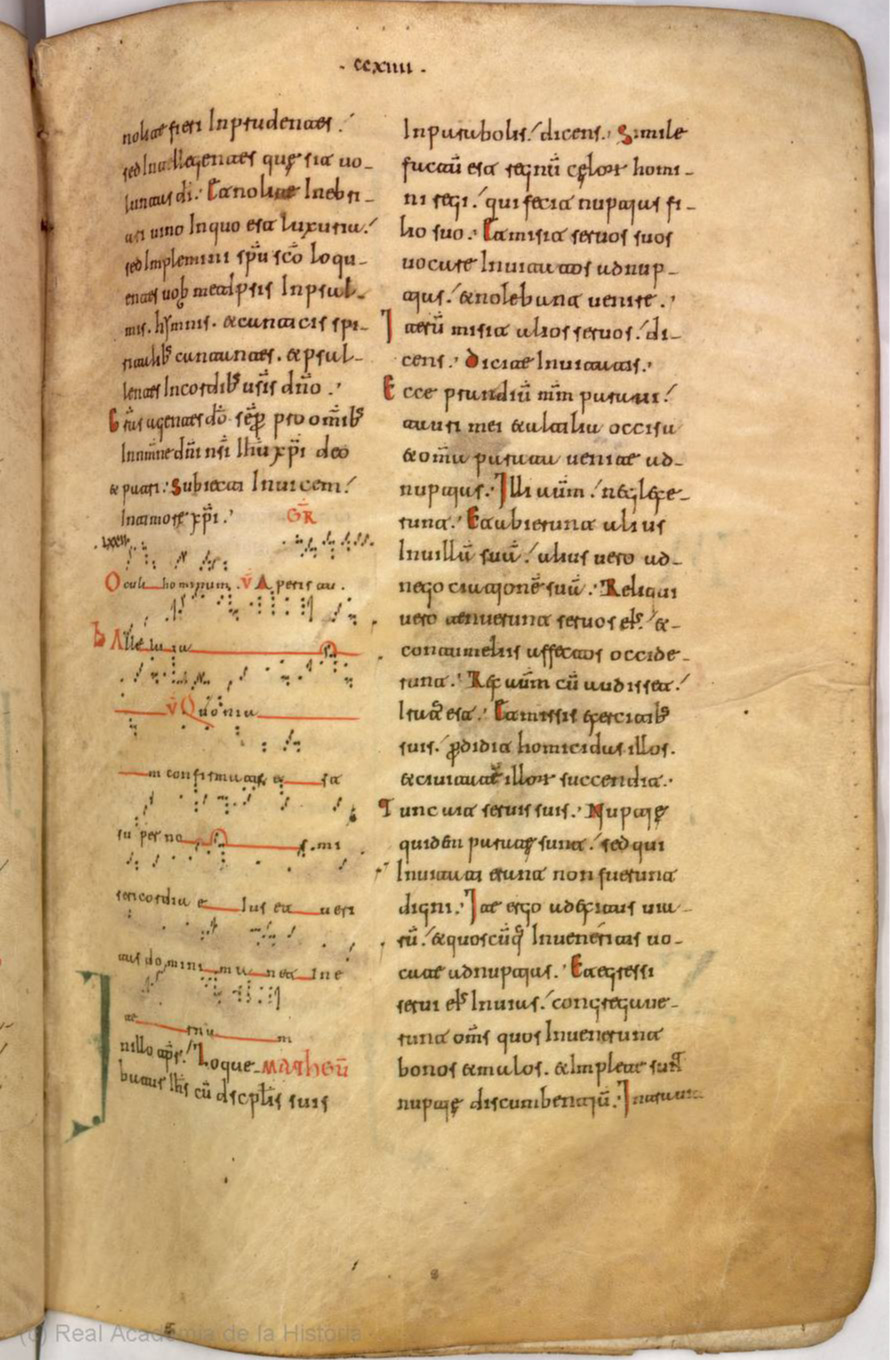 · ccxiiii ·
nolite fieri Inprudentes.
sed Intelligentes quę sit uo-
luntas di. Et nolite Inebri-
ari uino Inquo est luxuria.
sed Implemini spu sco loqu-
entes uob metipsis Inpsal-
mis. hymnis. & canticis spi-
ritalib cantantes. & psal-
lentes Incordib uris dno.
Gras agentes do sep pro omib
Innomine dni nri Ihu xpi deo
& patri. Subiecti Inuicem.
Intimore xpi. GR
Oculi hominum. V Aperis au.
Alleluia
V Quoniā
m confirmata e sa
su per no s. mi
sericordia e Ius et ueri
tas domini ma net Ine
te rnu m
nillo tpr. Loque Matheū
batur Ihs cū discplis suis
Inparabolis. dicens. Simile
factū est regnū cęlor homi-
ni regi. qui fecit nuptias fi-
lio suo. Et misit seruos suos
uocare Inuitatos adnup-
tias. & nolebant uenire.
Iterū misit alios seruos. di-
cens. Dicite Inuitatis.
Ecce prandiū mm paraui.
tauri mei & altilia occisa
& omia parata uenite ad-
nuptias. Illi autm. neglexe-
runt. Et abierunt alius
Inuillā suā. alius uero ad-
negotiationē suā. Reliqui
uero tenuerunt seruos ei. &-
contumeliis affectos occide-
runt. Rex autm cū audisset.
Iratus est. Et missis exercitib
suis. pdidit homicidas illos.
& ciuitatē illor succendit.
Tunc ait seruis suis. Nuptię
quidem paratę sunt. sed qui
Inuitati erant non fuerunt
digni. Ite ergo adexitus uia-
rū. & quoscūq Inueneritis uo-
cate adnuptias. Et egressi
serui ei Inuias. congregaue-
runt oms quos Inuenerunt
bonos & malos. & Implete sunt
nuptię discumbentiū. Intrauit
(c) Real Academia de la Historia